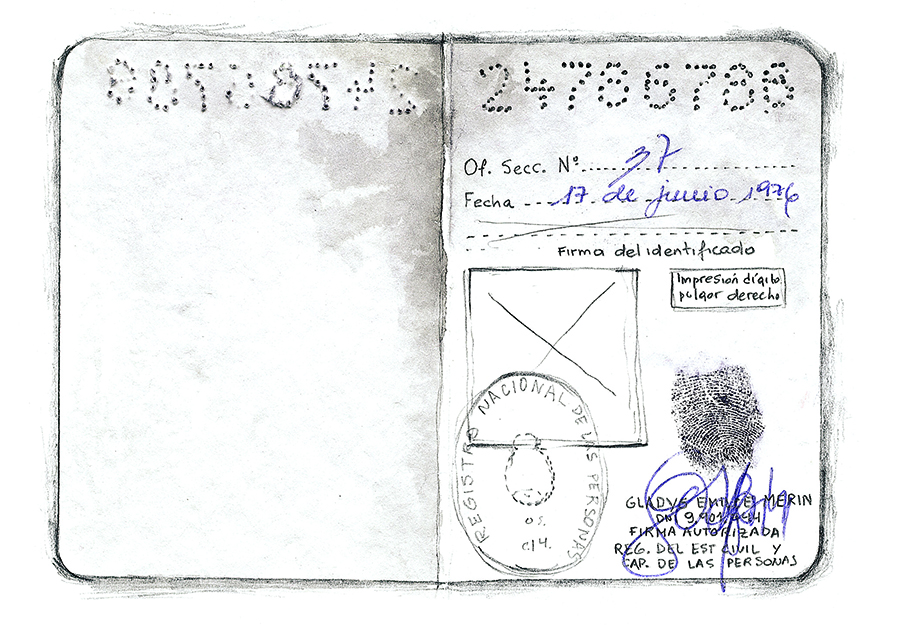 Of. Secc. Nº 37
Fecha 17 de junio 1976
Firma del identificado
Impresión dígito
pulgar derecho
REGISTRO NACIONAL DE LAS PERSONAS
GLADYS DE MERIN
DNI
FIRMA AUTORIZADA
REG. DEL EST CIVIL Y
CAP. DE LAS PERSONAS